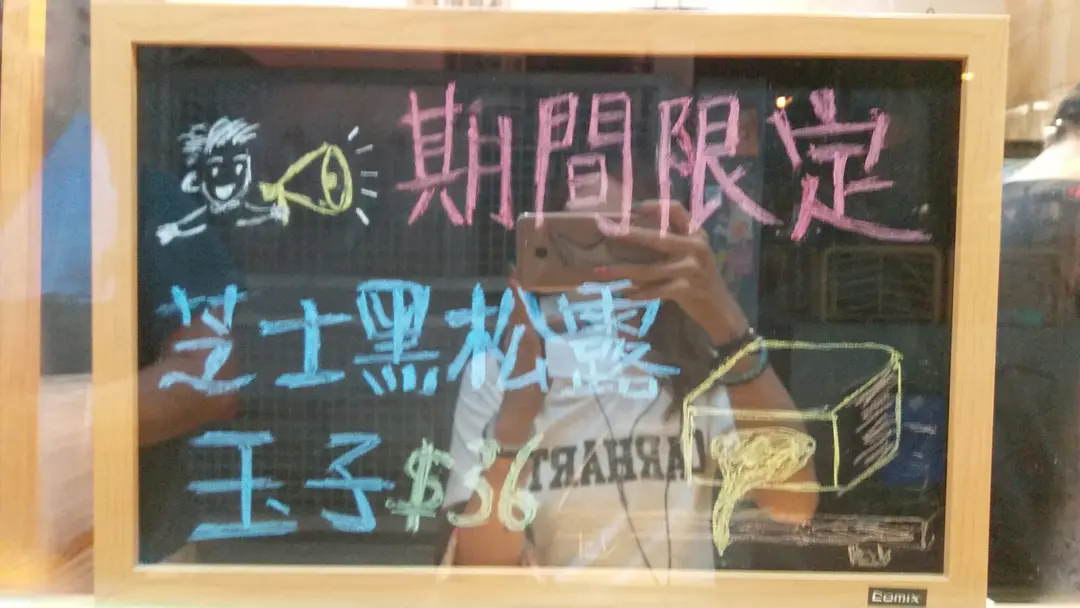 期間限定
芝士黑松露
玉子$36
CARHART
comix